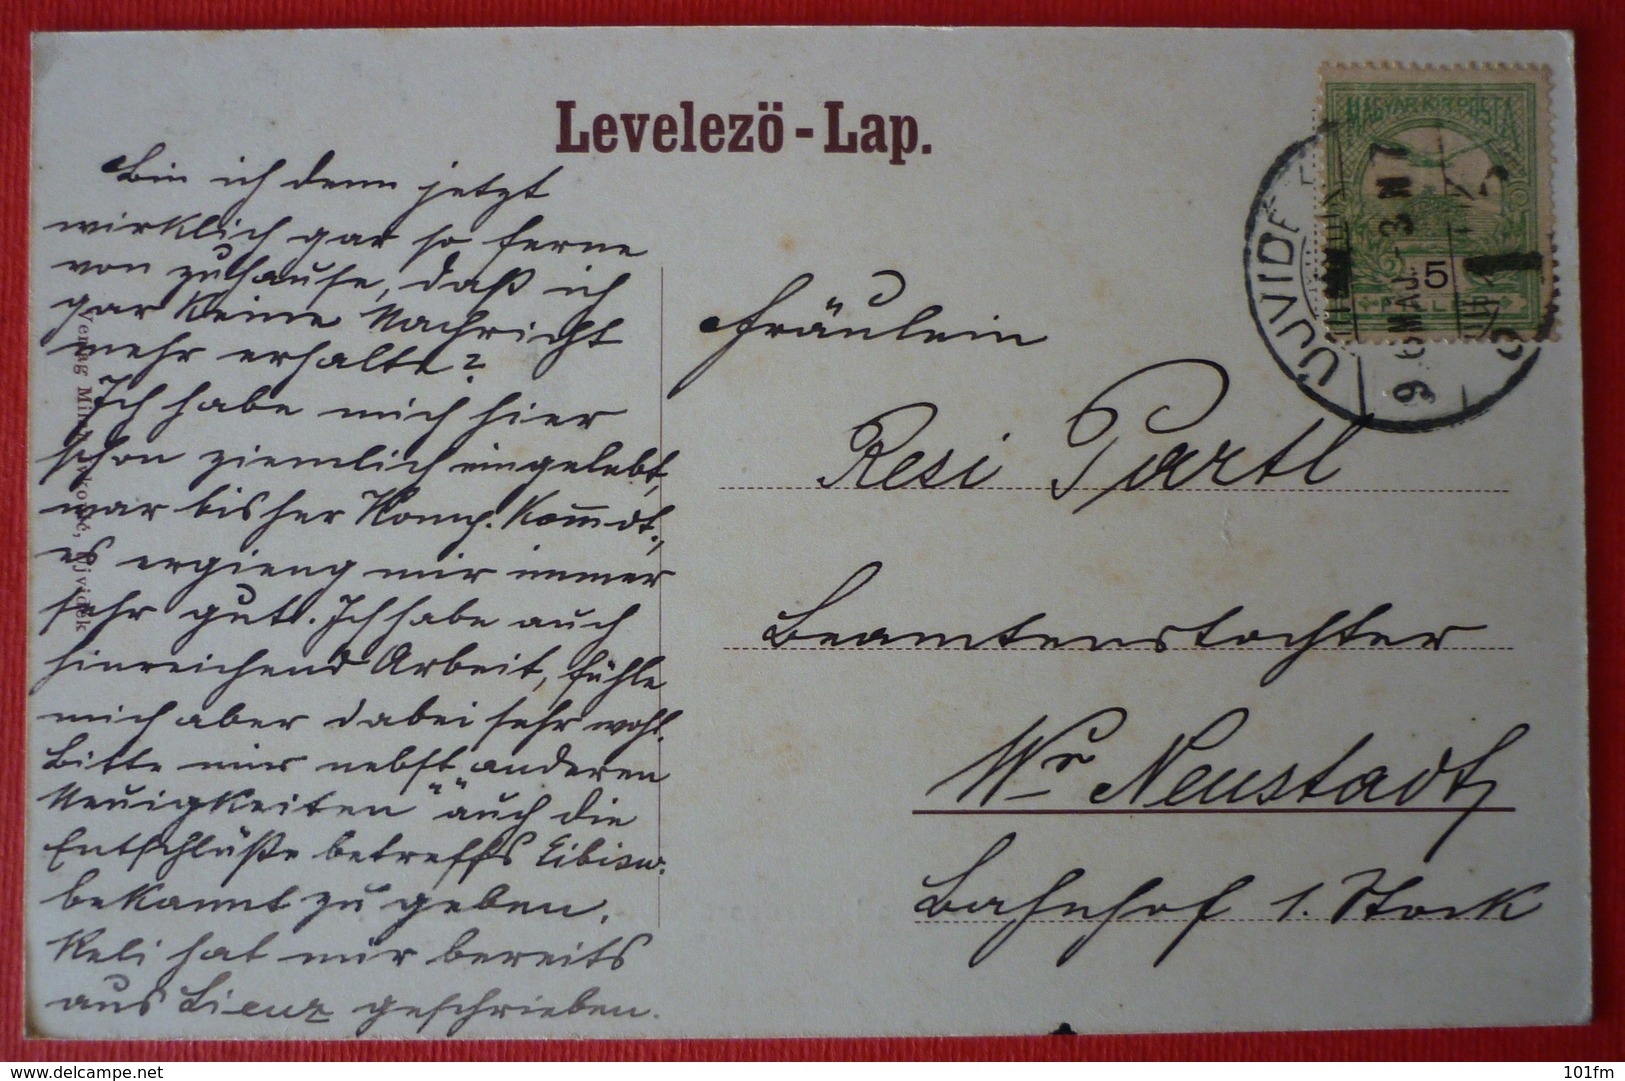 Levelezö-Lap.
Bin ich denn jetzt
wirklich gar so ferne
von zuhause, daß ich
gar keine Nachricht
mehr erhalte?
Ich habe mich hier
schon ziemlich eingelebt,
war bisher Komp. Kom̅dt.,
es ergieng mir immer
sehr gut. Ich habe auch
hinreichend Arbeit, fühle
mich aber dabei sehr wohl.
Bitte mir nebst anderen
Neuigkeiten auch die
Entschlüße betreffs Eibisw.
bekannt zu geben.
Reli hat mir bereits
aus Lienz geschrieben.
Fräulein
Resi Partl
Beamtenstochter
Wr Neustadt
Bahnhof 1. Stock
MAGYAR KIR. POSTA
5
ÚJVIDÉK
MAJ.
Verlag
Újvidék
101fm